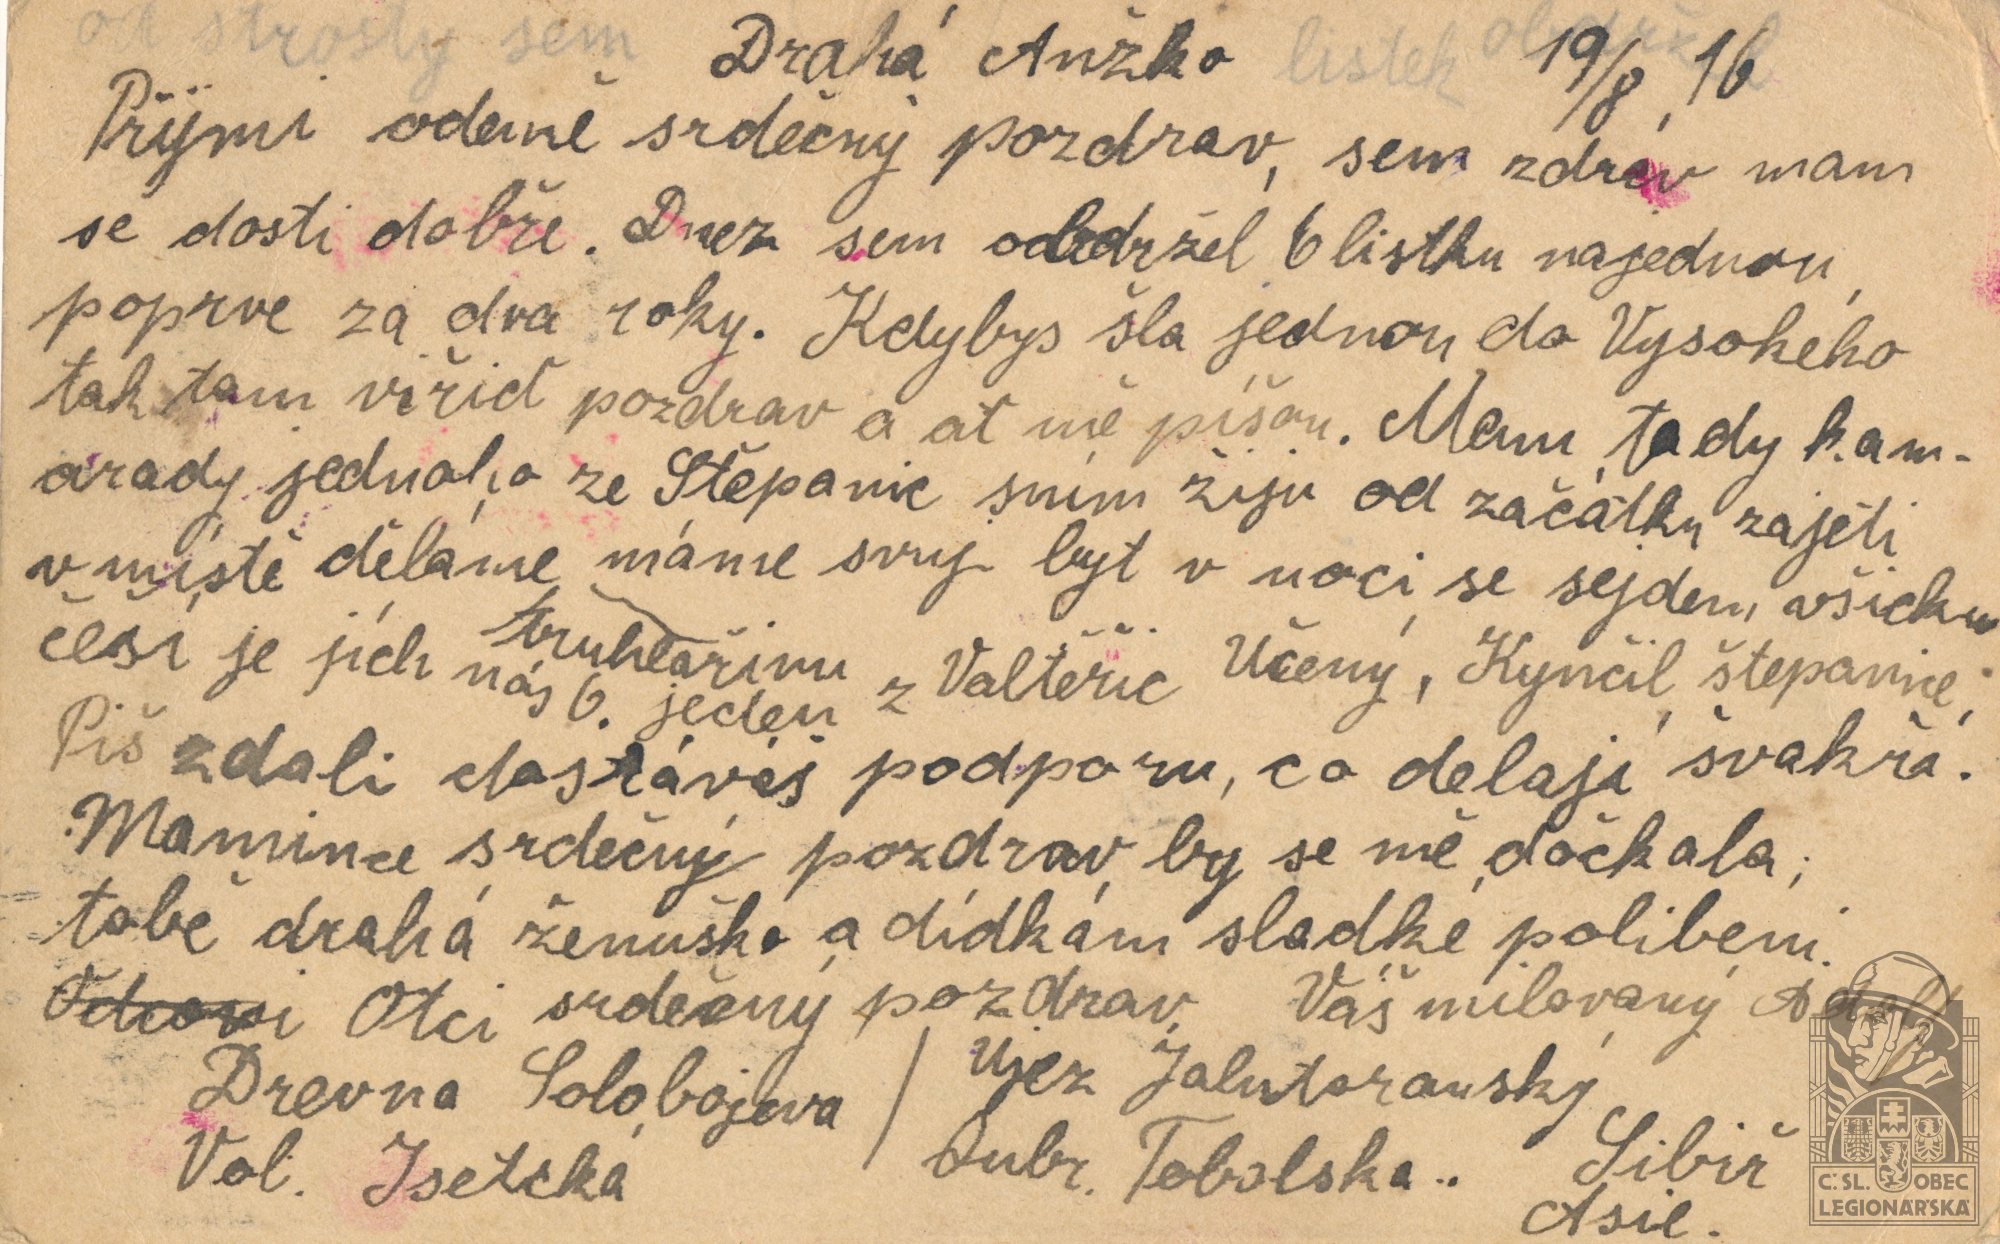 od strosty sem listek obdržel
Drahá Anžko 19/8, 16
Přijmi odemě srdečný pozdrav, sem zdráv mam
se dosti dobře. Dnez sem obdržel 6 listku najednou,
poprve za dva roky. Kdybys šla jednou do Vysokeho
tak tam viřiď pozdrav a at mě píšou. Mam tady kam-
arady jednoho ze Štěpanic sním žiju od začátku zajeti
v místě děláme truhlařinu máme svuj byt v noci se sejdem všickni
česi je jich nás 6. jeden z Valteřic Učený, Kynčil štepanice,
Piš zdali dostáváš podporu, co delaji švakři.
Mamince srdečný pozdrav, by se mě dočkala;
tobě drahá ženuško a dídkám sladké polibeni.
Otci srdečný pozdrav, Váš milovaný Adolf
Drevna Solobojeva / Ujez Jalutorauský
Vol. Isetská Gubr. Tobolska.. Sibiř
Asie.
Č.SL. OBEC
LEGIONÁŘSKÁ